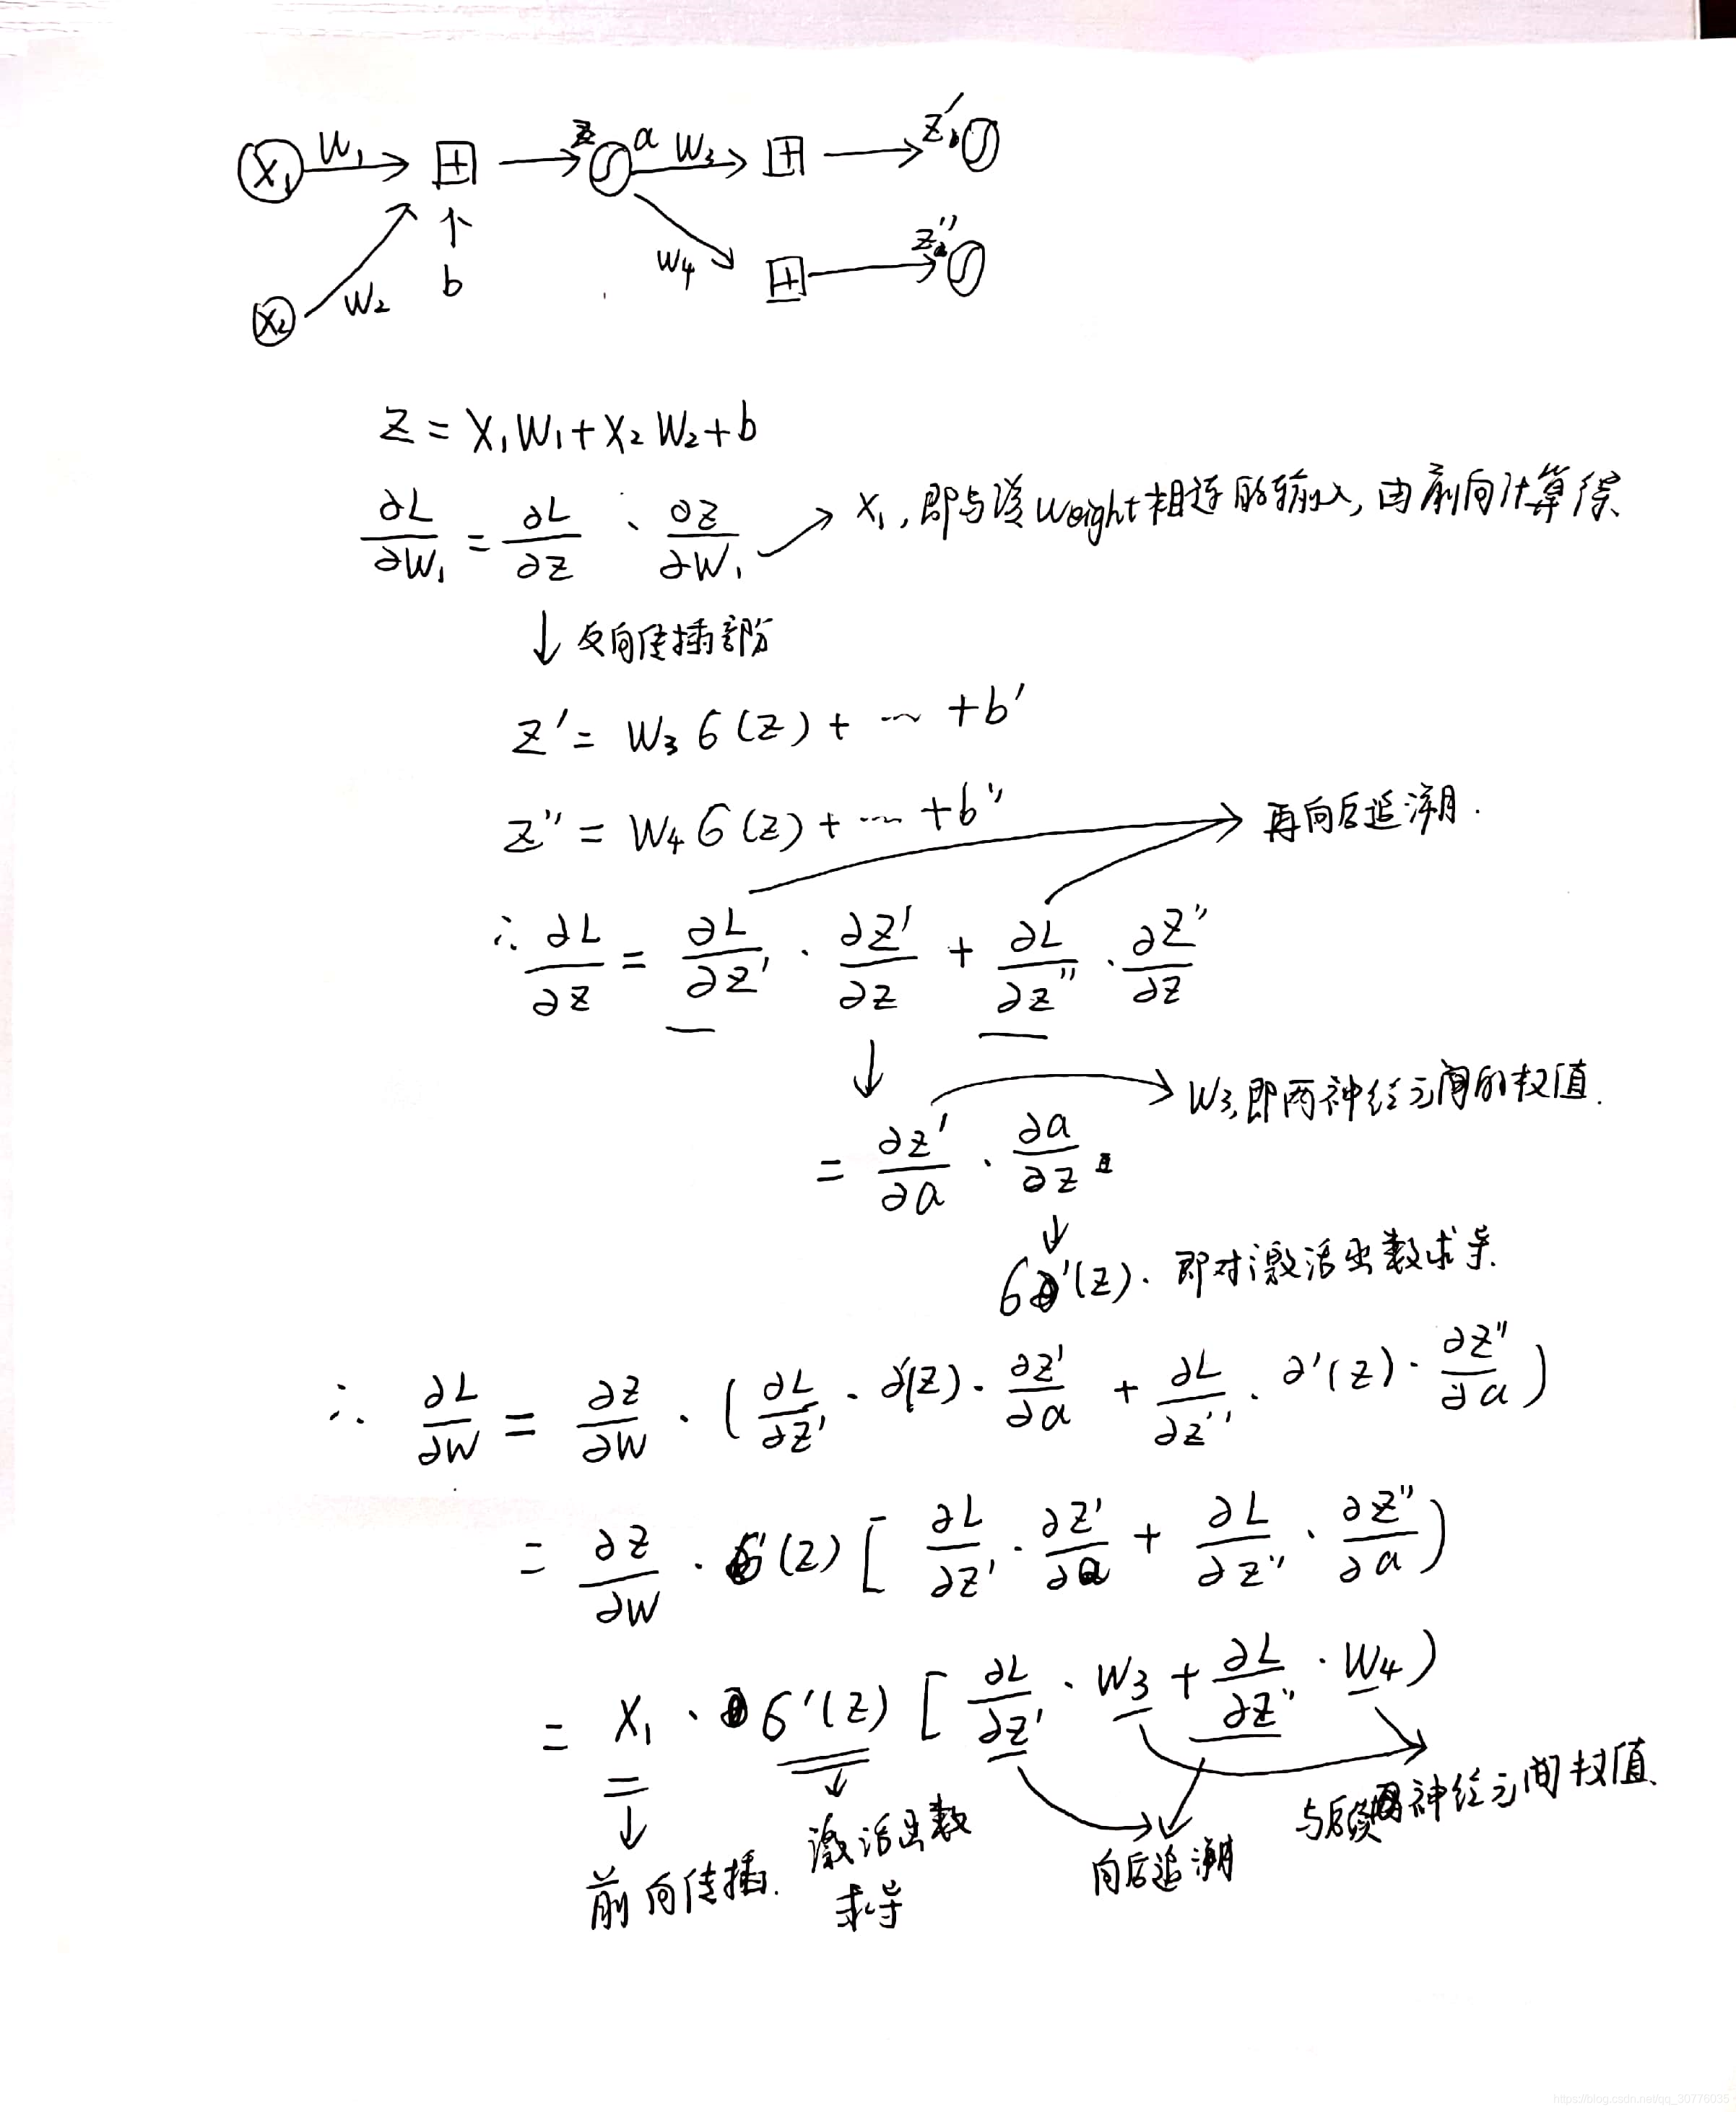 X₁ W₁ + → z a W₃ + → z'
X₂ W₂ ↑ b W₄ + → z''
z = X₁W₁ + X₂W₂ + b
∂L/∂W₁ = ∂L/∂z · ∂z/∂W₁ → X₁, 即与该weight相连的输入, 由前向计算得
↓ 反向传播部分
z' = W₃ σ(z) + ... + b'
z'' = W₄ σ(z) + ... + b''
→ 再向后追溯.
∴ ∂L/∂z = ∂L/∂z' · ∂z'/∂z + ∂L/∂z'' · ∂z''/∂z
↓ → W₃, 即两神经元间的权值.
= ∂z'/∂a · ∂a/∂z
↓
σ'(z). 即对激活函数求导.
∴ ∂L/∂W = ∂z/∂W · (∂L/∂z' · ∂'(z) · ∂z'/∂a + ∂L/∂z'' · ∂'(z) · ∂z''/∂a)
= ∂z/∂W · σ'(z) [∂L/∂z' · ∂z'/∂a + ∂L/∂z'' · ∂z''/∂a)
= X₁ · σ'(z) [∂L/∂z' · W₃ + ∂L/∂z'' · W₄)
前向传播.
激活函数
求导
向后追溯
与后续神经元间权值.
https://blog.csdn.net/qq_30776035